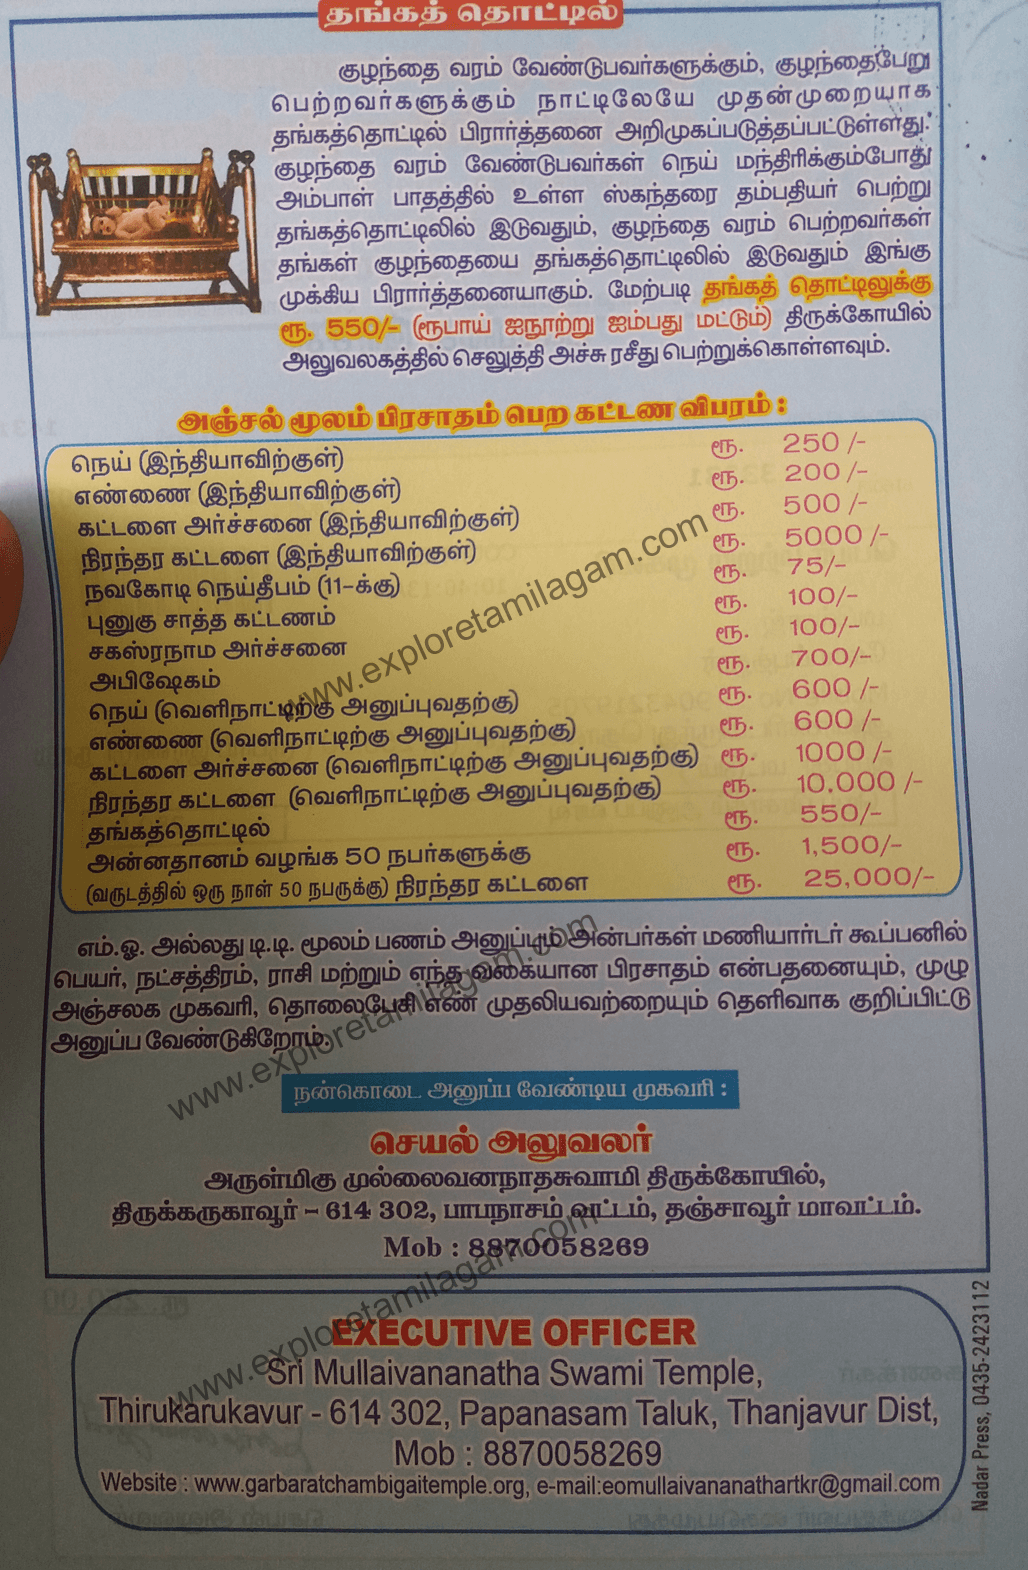 தங்கத் தொட்டில்
குழந்தை வரம் வேண்டுபவர்களுக்கும், குழந்தைபேறு
பெற்றவர்களுக்கும் நாட்டிலேயே முதன்முறையாக
தங்கத்தொட்டில் பிரார்த்தனை அறிமுகப்படுத்தப்பட்டுள்ளது.
குழந்தை வரம் வேண்டுபவர்கள் நெய் மந்திரிக்கும்போது
அம்பாள் பாதத்தில் உள்ள ஸ்கந்தரை தம்பதியர் பெற்று
தங்கத்தொட்டிலில் இடுவதும், குழந்தை வரம் பெற்றவர்கள்
தங்கள் குழந்தையை தங்கத்தொட்டிலில் இடுவதும் இங்கு
முக்கிய பிரார்த்தனையாகும். மேற்படி தங்கத் தொட்டிலுக்கு
ரூ. 550/- (ரூபாய் ஐநூற்று ஐம்பது மட்டும்) திருக்கோயில்
அலுவலகத்தில் செலுத்தி அச்சு ரசீது பெற்றுக்கொள்ளவும்.
அஞ்சல் மூலம் பிரசாதம் பெற கட்டண விபரம் :
நெய் (இந்தியாவிற்குள்) ரூ. 250/-
எண்ணை (இந்தியாவிற்குள்) ரூ. 200/-
கட்டளை அர்ச்சனை (இந்தியாவிற்குள்) ரூ. 500/-
நிரந்தர கட்டளை (இந்தியாவிற்குள்) ரூ. 5000/-
நவகோடி நெய்தீபம் (11-க்கு) ரூ. 75/-
புனுகு சாத்த கட்டணம் ரூ. 100/-
சகஸ்ரநாம அர்ச்சனை ரூ. 100/-
அபிஷேகம் ரூ. 700/-
நெய் (வெளிநாட்டிற்கு அனுப்புவதற்கு) ரூ. 600/-
எண்ணை (வெளிநாட்டிற்கு அனுப்புவதற்கு) ரூ. 600/-
கட்டளை அர்ச்சனை (வெளிநாட்டிற்கு அனுப்புவதற்கு) ரூ. 1000/-
நிரந்தர கட்டளை (வெளிநாட்டிற்கு அனுப்புவதற்கு) ரூ. 10,000/-
தங்கத்தொட்டில் ரூ. 550/-
அன்னதானம் வழங்க 50 நபர்களுக்கு ரூ. 1,500/-
(வருடத்தில் ஒரு நாள் 50 நபருக்கு) நிரந்தர கட்டளை ரூ. 25,000/-
எம்.ஓ. அல்லது டி.டி. மூலம் பணம் அனுப்பும் அன்பர்கள் மணியார்டர் கூப்பனில்
பெயர், நட்சத்திரம், ராசி மற்றும் எந்த வகையான பிரசாதம் என்பதனையும், முழு
அஞ்சலக முகவரி, தொலைபேசி எண் முதலியவற்றையும் தெளிவாக குறிப்பிட்டு
அனுப்ப வேண்டுகிறோம்.
நன்கொடை அனுப்ப வேண்டிய முகவரி :
செயல் அலுவலர்
அருள்மிகு முல்லைவனநாதசுவாமி திருக்கோயில்,
திருக்கருகாவூர் – 614 302, பாபநாசம் வட்டம், தஞ்சாவூர் மாவட்டம்.
Mob : 8870058269
EXECUTIVE OFFICER
Sri Mullaivananatha Swami Temple,
Thirukarukavur - 614 302, Papanasam Taluk, Thanjavur Dist,
Mob : 8870058269
Website : www.garbaratchambigaitemple.org, e-mail:eomullaivananathartkr@gmail.com
Nadar Press, 0435-2423112
www.exploretamilagam.com
www.exploretamilagam.com
www.exploretamilagam.com